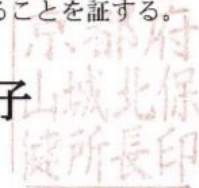 ることを証する。
子
京都府
山城北保
健所長印